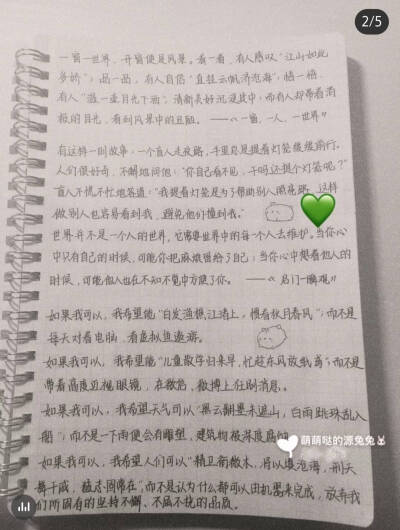 2/5
一窗一世界,开窗便是风景。看一看,有人感叹"江山如此
多娇";品一品,有人自信"直挂云帆济沧海";悟一悟,
有人"滋一壶月光下酒"。清新美好沉浸其中,而有人却带着消
极的目光,看到风景中的丑陋。——《一窗,一人,一世界》
有这样一则故事:一个盲人走夜路,手里总是提着灯笼缓缓前行。
人们很好奇,不解地问他:"你自己看不见,干吗还提个灯笼呢?"
盲人不慌不忙地答道:"我提着灯笼是为了帮助别人照亮路,这样
做别人也容易看到我,避免他们撞到我。"
世界并不是一个人的世界,它需要世界中的每一个人去维护。当你心
中只有自己的时候,可能你把麻烦留给了自己;当你心中想着他人的
时候,可能他人也在不知不觉中方便了你。——《名门一瞬观》
如果我可以,我希望能"白发渔樵江渚上,惯看秋月春风";而不是
每天对着电脑,看虚拟鱼遨游。
如果我可以,我希望能"儿童散学归来早,忙趁东风放纸鸢";而不是
带着高度近视眼镜,在微信,微博上任刷消息。
如果我可以,我希望天气可以"黑云翻墨未遮山,白雨跳珠乱入
船";而不是一下雨便会有雕塑,建筑物被深度腐蚀
如果我可以,我希望人们可以"精卫衔微木,将以填沧海,刑天
舞干戚,猛志固常在",而不是认为什么都可以由机器来完成,放弃我
们所固有的坚持不懈、不屈不挠的品质。
萌萌哒的源兔兔